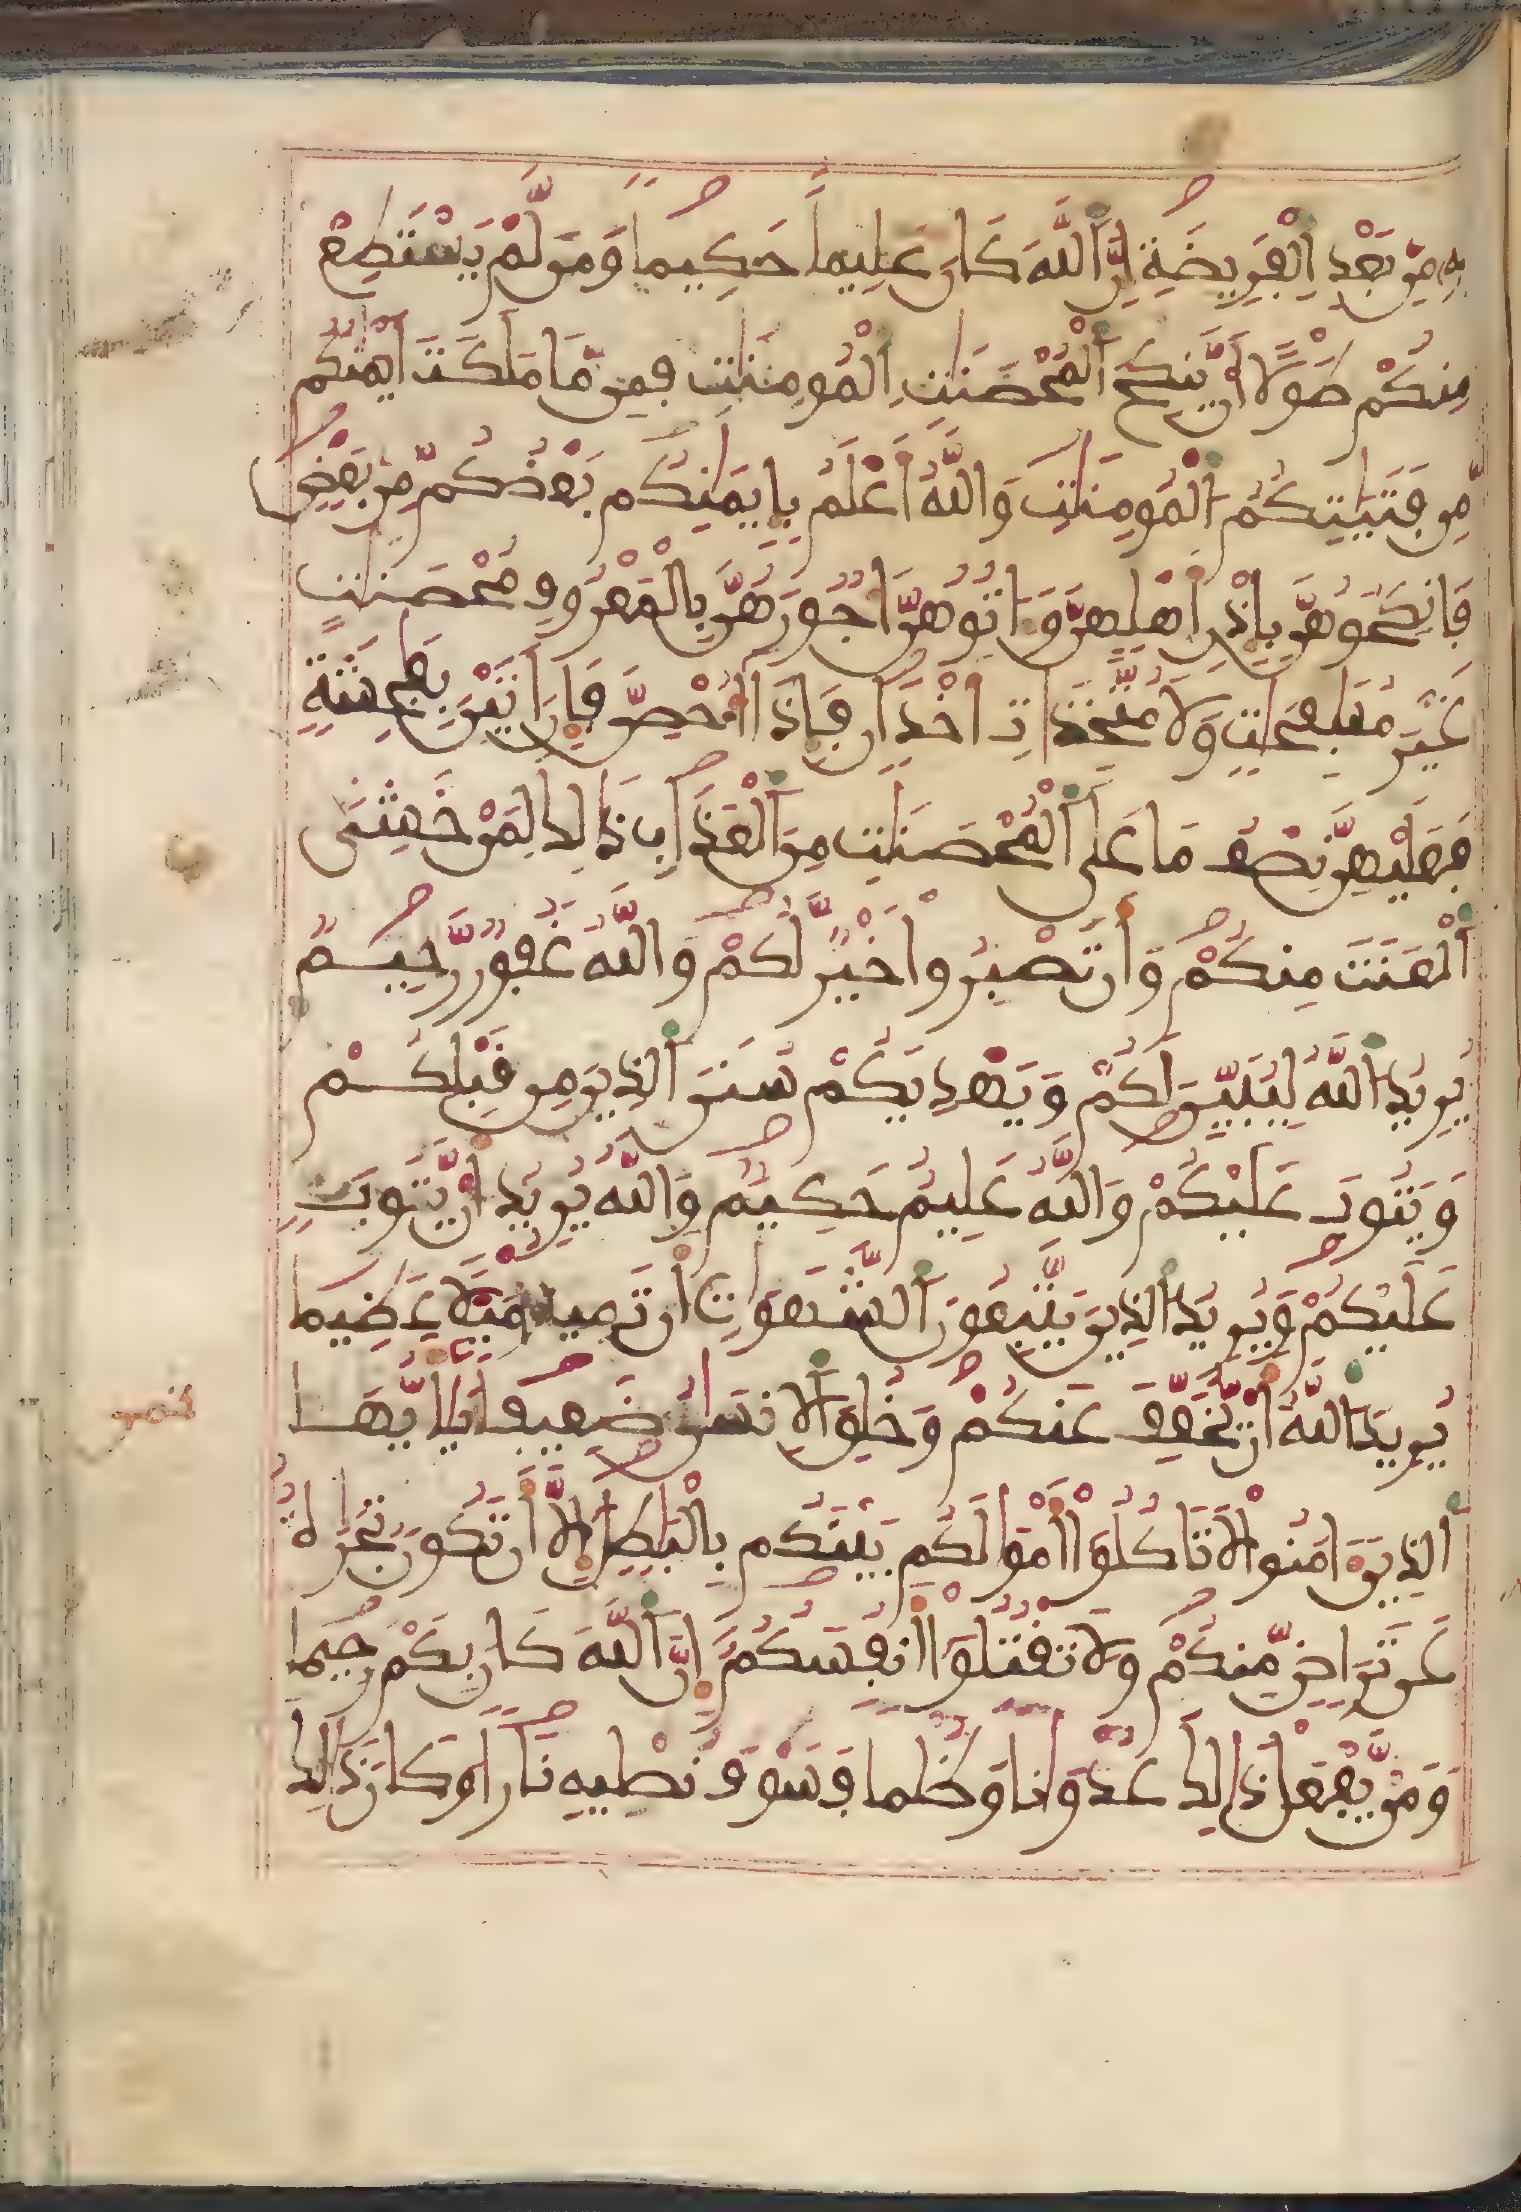 بِهِ مِنۢ بَعْدِ اِ۬لْفَرِيضَةِ إِنَّ اَ۬للَّهَ كَانَ عَلِيماً حَكِيماً وَمَن لَّمْ يَسْتَطِعْ
مِنكُمْ طَوْلًا أَنْ يَّنكِحَ اَ۬لْمُحْصَنَٰتِ اِ۬لْمُومِنَٰتِ فَمِن مَّا مَلَكَتَ اَيْمَٰنُكُم
مِّن فَتَيَٰتِكُمُ اُ۬لْمُومِنَٰتِ وَاللَّهُ أَعْلَمُ بِإِيمَٰنِكُم بَعْضُكُم مِّنۢ بَعْضٍ
فَانكِحُوهُنَّ بِإِذْنِ أَهْلِهِنَّ وَءَاتُوهُنَّ أُجُورَهُنَّ بِالْمَعْرُوفِ مُحْصَنَٰتٍ
غَيْرَ مُسَٰفِحَٰتٍ وَلَا مُتَّخِذَاتِ أَخْدَانٍ فَإِذَا أُحْصِنَّ فَإِنَ اَتَيْنَ بِفَٰحِشَةٍ
فَعَلَيْهِنَّ نِصْفُ مَا عَلَى اَ۬لْمُحْصَنَٰتِ مِنَ اَ۬لْعَذَابِ ذَٰلِكَ لِمَنْ خَشِيَ
اَ۬لْعَنَتَ مِنكُمْ وَأَن تَصْبِرُوا خَيْرٌ لَّكُمْ وَاللَّهُ غَفُورٌ رَّحِيمٌ
يُرِيدُ اُ۬للَّهُ لِيُبَيِّنَ لَكُمْ وَيَهْدِيَكُمْ سُنَنَ اَ۬لذِينَ مِن قَبْلِكُمْ
وَيَتُوبَ عَلَيْكُمْ وَاللَّهُ عَلِيمٌ حَكِيمٌ وَاللَّهُ يُرِيدُ أَنْ يَّتُوبَ
عَلَيْكُمْ وَيُرِيدُ اُ۬لذِينَ يَتَّبِعُونَ اَ۬لشَّهَوَٰتِ أَن تَمِيلُوا مَيْلًا عَظِيماً
يُرِيدُ اُ۬للَّهُ أَنْ يُّخَفِّفَ عَنكُمْ وَخُلِقَ اَ۬لِانسَٰنُ ضَعِيفاً يَٰأَيُّهَا
اَ۬لذِينَ ءَامَنُوا لَا تَاكُلُوا أَمْوَٰلَكُم بَيْنَكُم بِالْبَٰطِلِ إِلَّا أَن تَكُونَ تِجَٰرَةٌ
عَن تَرَاضٍ مِّنكُمْ وَلَا تَقْتُلُوا أَنفُسَكُمْ إِنَّ اَ۬للَّهَ كَانَ بِكُمْ رَحِيماً
وَمَنْ يَّفْعَلْ ذَٰلِكَ عُدْوَٰناً وَظُلْماً فَسَوْفَ نُصْلِيهِ نَاراً وَكَانَ ذَٰلِكَ